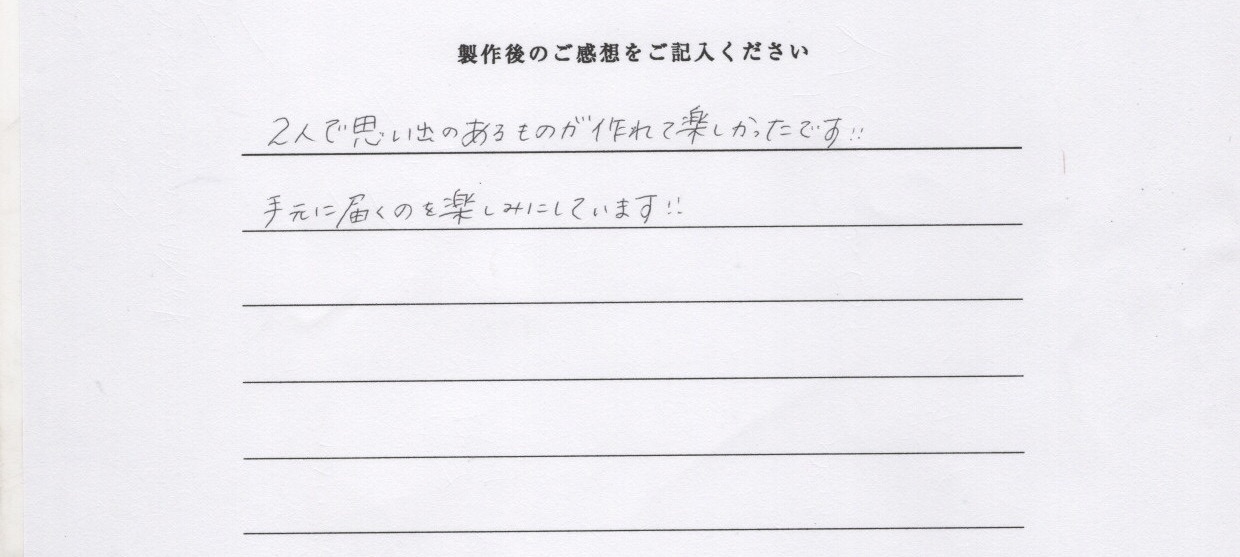 製作後のご感想をご記入ください
2人で思い出のあるものが作れて楽しかったです!!
手元に届くのを楽しみにしています!!